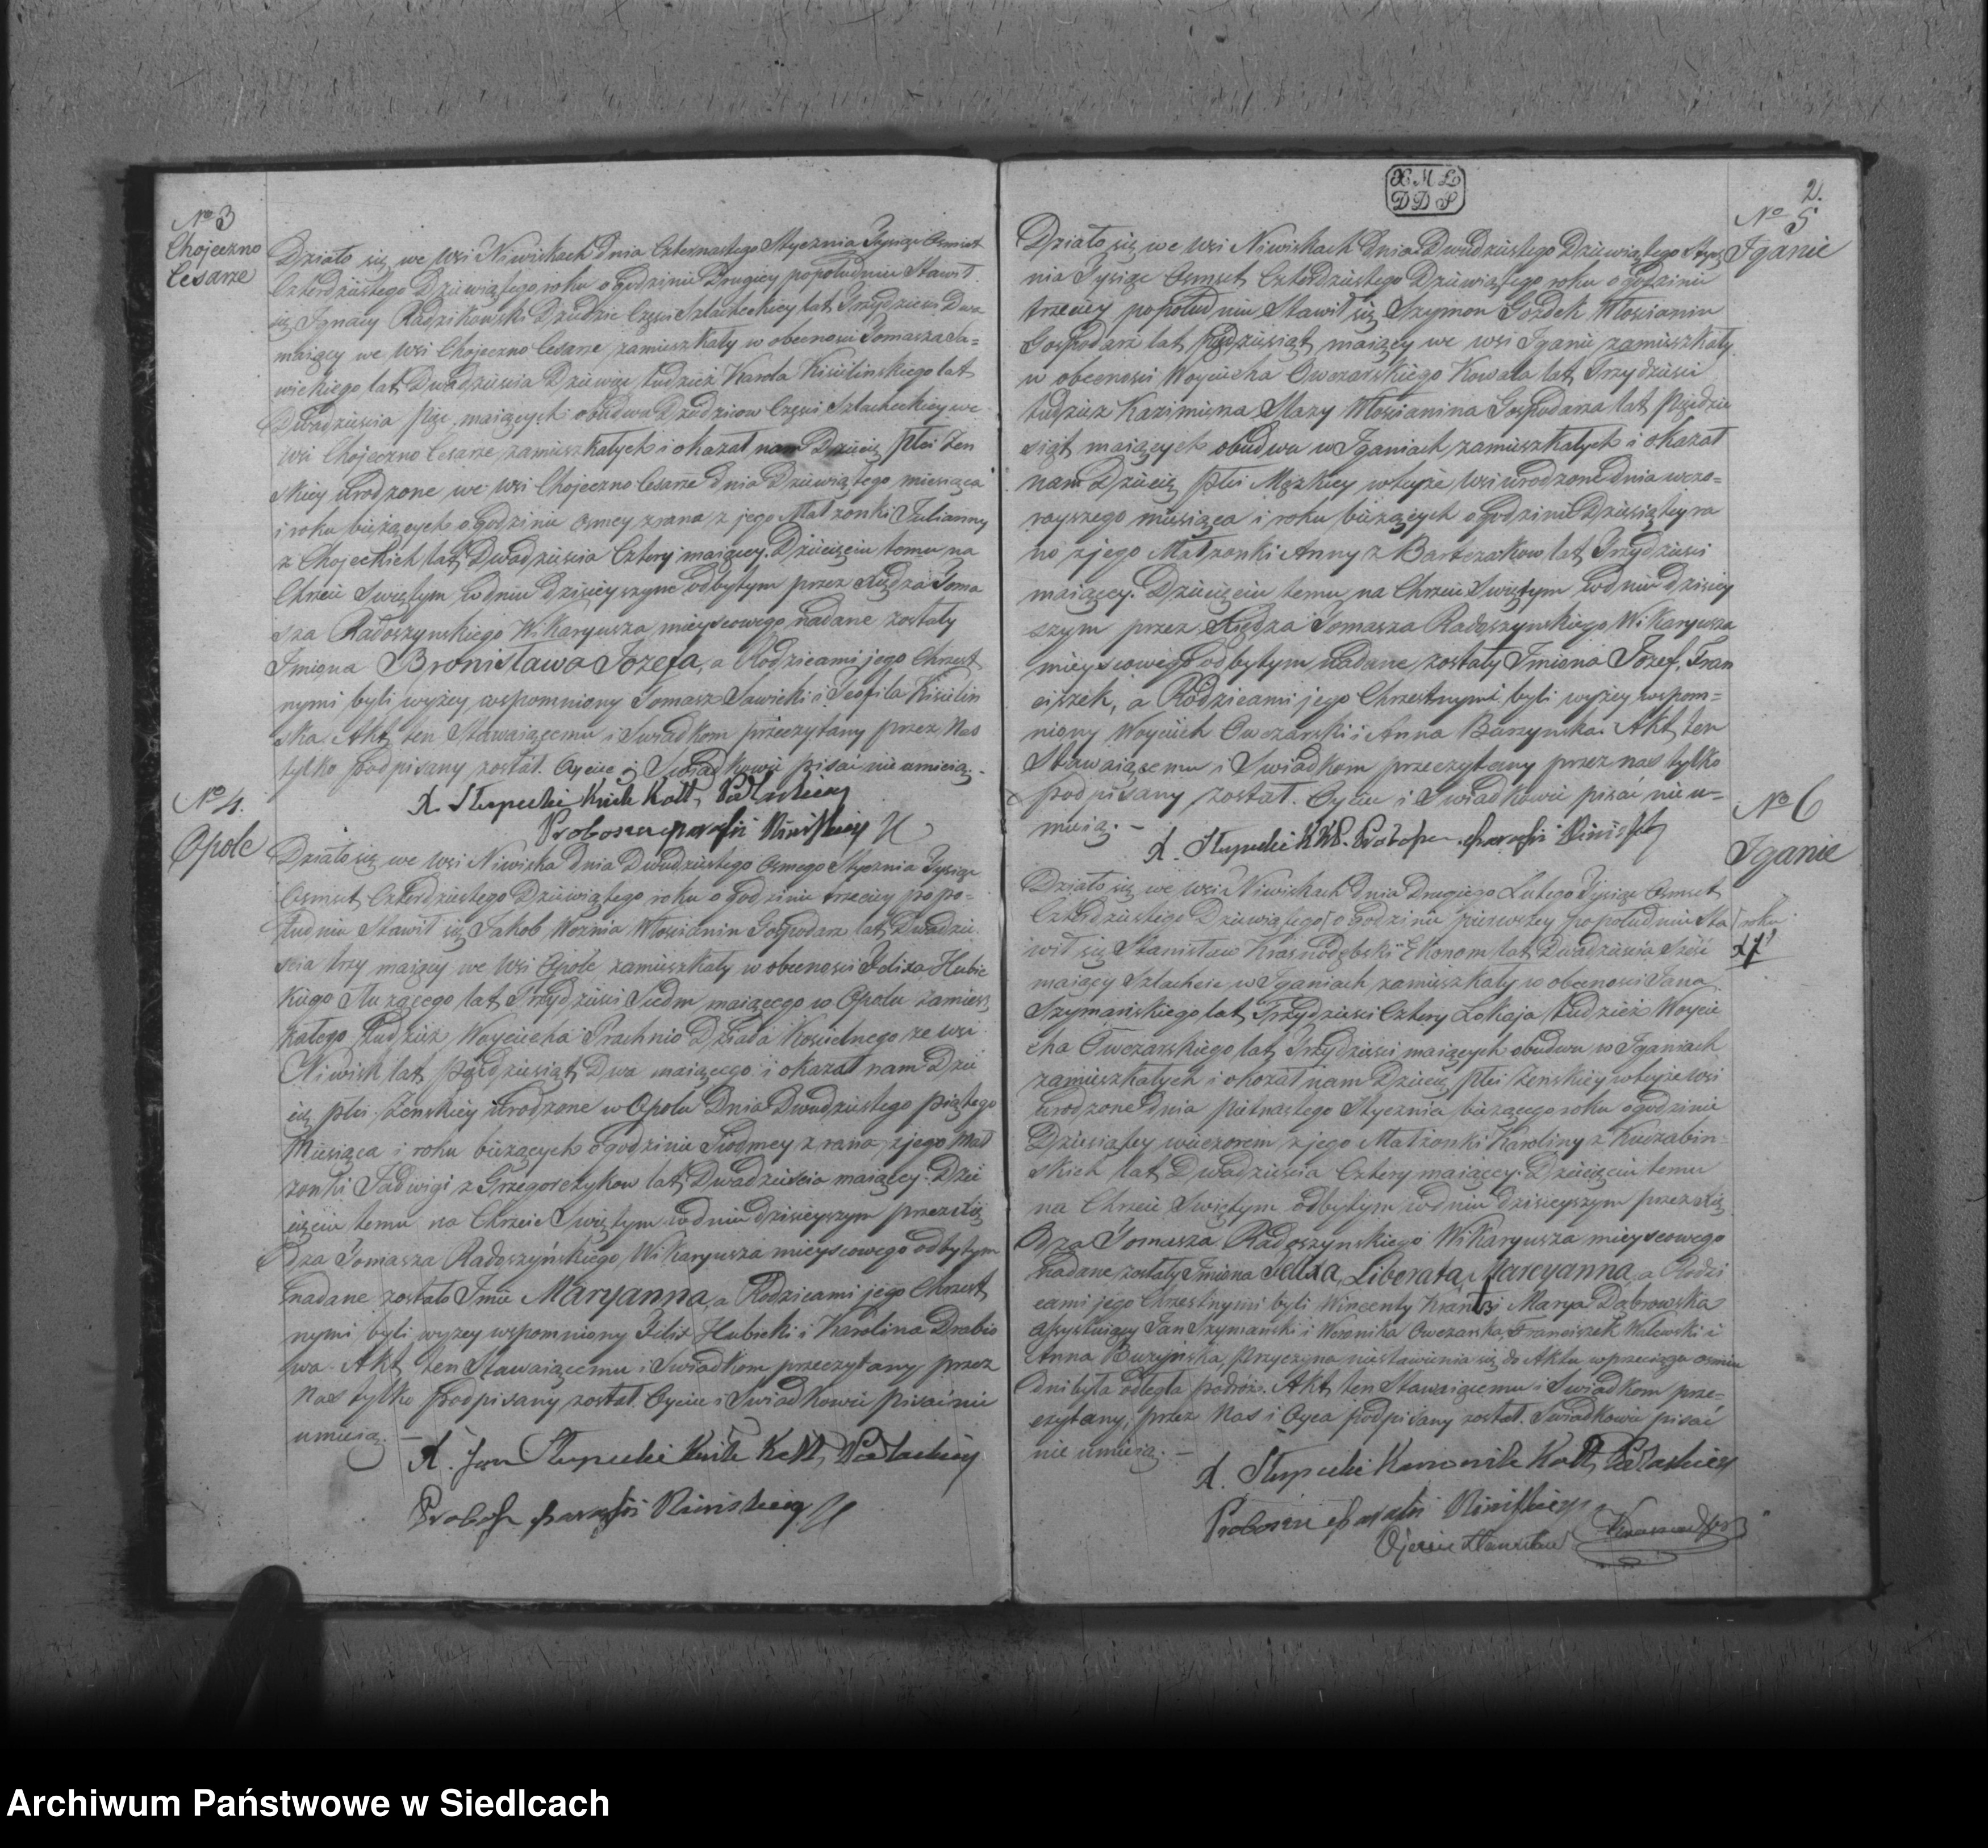 No 3
Chojeczno
Cesarze
Działo się we wsi Niwiskach dnia Czternastego Stycznia Tysiąc Osmset
Czterdziestego Dziewiątego roku o godzinie Drugiey popołudniu Stawił
się Ignacy Radzikowski Dziedzic Części Szlacheckiey lat Trzydzieści Dwa
maiący we wsi Chojeczno Cesarze zamieszkały w obecności Tomasza Sa=
wickiego lat Dwadzieścia Dziewięć tudzież Karola Kisielinskiego lat
Dwadzieścia Pięć maiących obudwu Dziedziców Części Szlacheckiey we
wsi Chojeczno Cesarze zamieszkałych i okazał nam Dziecię Płci Zen
skiey urodzone we wsi Chojeczno Cesarze dnia Dziewiątego miesiąca
i roku bieżących o godzinie osmey zrana z jego Małżonki Julianny
z Chojeckich lat Dwadzieścia Cztery maiącey. Dziecięciu temu na
Chrzcie Swiętym w dniu dzisieyszym odbytym przez Księdza Toma
sza Radoszynskiego Wikaryusza mieyscowego nadane zostały
Imiona Bronisława Józefa, a Rodzicami jego Chrzest
nymi byli wyżey wspomniony Tomasz Sawicki i Teofila Kisielin
ska Akt ten Stawaiącemu i Swiadkom przeczytany przez Nas
tylko podpisany został. Oyciec i Swiadkowie pisać nie umieią.
X Słupecki Kank Kat. Podlaskiey
Proboszcz parafii Niwiskiey
No 4.
Opole
Działo się we wsi Niwiska dnia Dwudziestego Osmego Stycznia Tysiąc
Osmset Czterdziestego Dziewiątego roku o godzinie trzeciey popo=
łudniu Stawił się Jakób Woźnia Włościanin Gospodarz lat Dwadzie
scia trzy maiący we wsi Opole zamieszkały w obecności Felixa Hubic
kiego Służącego lat Trzydzieści Siedm maiącego w Opolu zamiesz
kałego tudzież Woyciecha Prachnio Dziada Kościelnego ze wsi
Niwisk lat Pięćdziesiąt Dwa maiącego i okazał nam Dzie
cię płci żenskiey urodzone w Opolu Dnia Dwudziestego piątego
Miesiąca i roku bieżących o godzinie Siodmey z rana z jego Mał
żonki Jadwigi z Grzegorczykow lat Dwadzieścia maiącey. Dzie
cięciu temu na Chrzcie Swiętym w dniu dzisieyszym przez Xię
dza Tomasza Radoszyńskiego Wikaryusza mieyscowego odbytym
nadane zostało Imie Maryanna, a Rodzicami jego Chrzest
nymi byli wyżey wspomniony Felix Hubicki i Karolina Drabio
wa. Akt ten Stawaiącemu i Swiadkom przeczytany przez
Nas tylko podpisany został. Oyciec i Swiadkowie pisać nie
umieią. —
X. Jan Słupecki Kank Kat. Podlaskiey
Probosz parafii Niwiskiey
X M L
D D S
2.
No 5
Iganie
Działo się we wsi Niwiskach dnia Dwudziestego Dziewiątego Stycz
nia Tysiąc Osmset Czterdziestego Dziewiątego roku o godzinie
trzeciey popołudniu Stawił się Szymon Gozdek Włościanin
Gospodarz lat Pięćdziesiąt maiący we wsi Iganie zamieszkały
w obecności Woyciecha Owczarskiego Kowala lat Trzydzieści
tudzież Kazimierza Mazy Włościanina Gospodarza lat Pięćdzie
siąt maiących obudwu w Iganiach zamieszkałych i okazał
nam Dziecię Płci Męzkiey w teyże wsi urodzone dnia wczo=
rayszego miesiąca i roku bieżących o godzinie Dziesiątey ra
no z jego Małżonki Anny z Bartczakow lat Trzydzieści
maiącey. Dziecięciu temu na Chrzcie Swiętym w dniu dzisiey
szym przez Księdza Tomasza Radoszynskiego Wikaryusza
mieyscowego odbytym nadane zostały Imiona Józef, Fran
ciszek, a Rodzicami jego Chrzestnymi byli wyżey wspom=
niony Woyciech Owczarski i Anna Burzynska. Akt ten
Stawaiącemu i Swiadkom przeczytany przez nas tylko
podpisany został. Oyciec i Swiadkowie pisać nie u=
mieią. —
X. Słupecki KKP. Probosz. parafii Niwisk
No 6
Iganie
Działo się we wsi Niwiskach dnia Drugiego Lutego Tysiąc Osmset
Czterdziestego Dziewiątego o godzinie pierwszey popołudniu Sta
roku
wił się Stanisław Krasnodębski Ekonom lat Dwadzieścia Sześć
maiący Szlachcic w Iganiach zamieszkały w obecności Jana
Szymańskiego lat Trzydzieści Cztery Lokaja tudzież Woycie
cha Owczarskiego lat Trzydzieści maiących obudwu w Iganiach
zamieszkałych i okazał nam Dziecię płci żenskiey w teyże wsi
urodzone dnia pietnastego Stycznia bieżącego roku o godzinie
Dziesiątey wieczorem z jego Małżonki Karoliny z Kuczabin=
skich lat Dwadzieścia Cztery maiącey. Dziecięciu temu
na Chrzcie Swiętym odbytym w dniu dzisieyszym przez Xię
dza Tomasza Radoszynskiego Wikaryusza mieyscowego
nadane zostały Imiona Felixa, Liberata, Maryanna, a Rodzi
cami jego Chrzestnymi byli Wincenty i Marya Dąbrowska
Assystuiący Jan Szymański i Weronika Owczarska, Franciszek Walewski i
Anna Burzyńska, Przyczyną niestawienia się do Aktu w przeciągu osmiu
dni była odległa podróż. Akt ten Stawaiącemu i Swiadkom prze=
czytany, przez Nas i Oyca podpisany został. Swiadkowie pisać
nie umieią. —
X. Słupecki Kanonik Kat. Podlaskiey
Proboszcz parafii Niwiskiey
Ojciec Stanisław
Archiwum Państwowe w Siedlcach